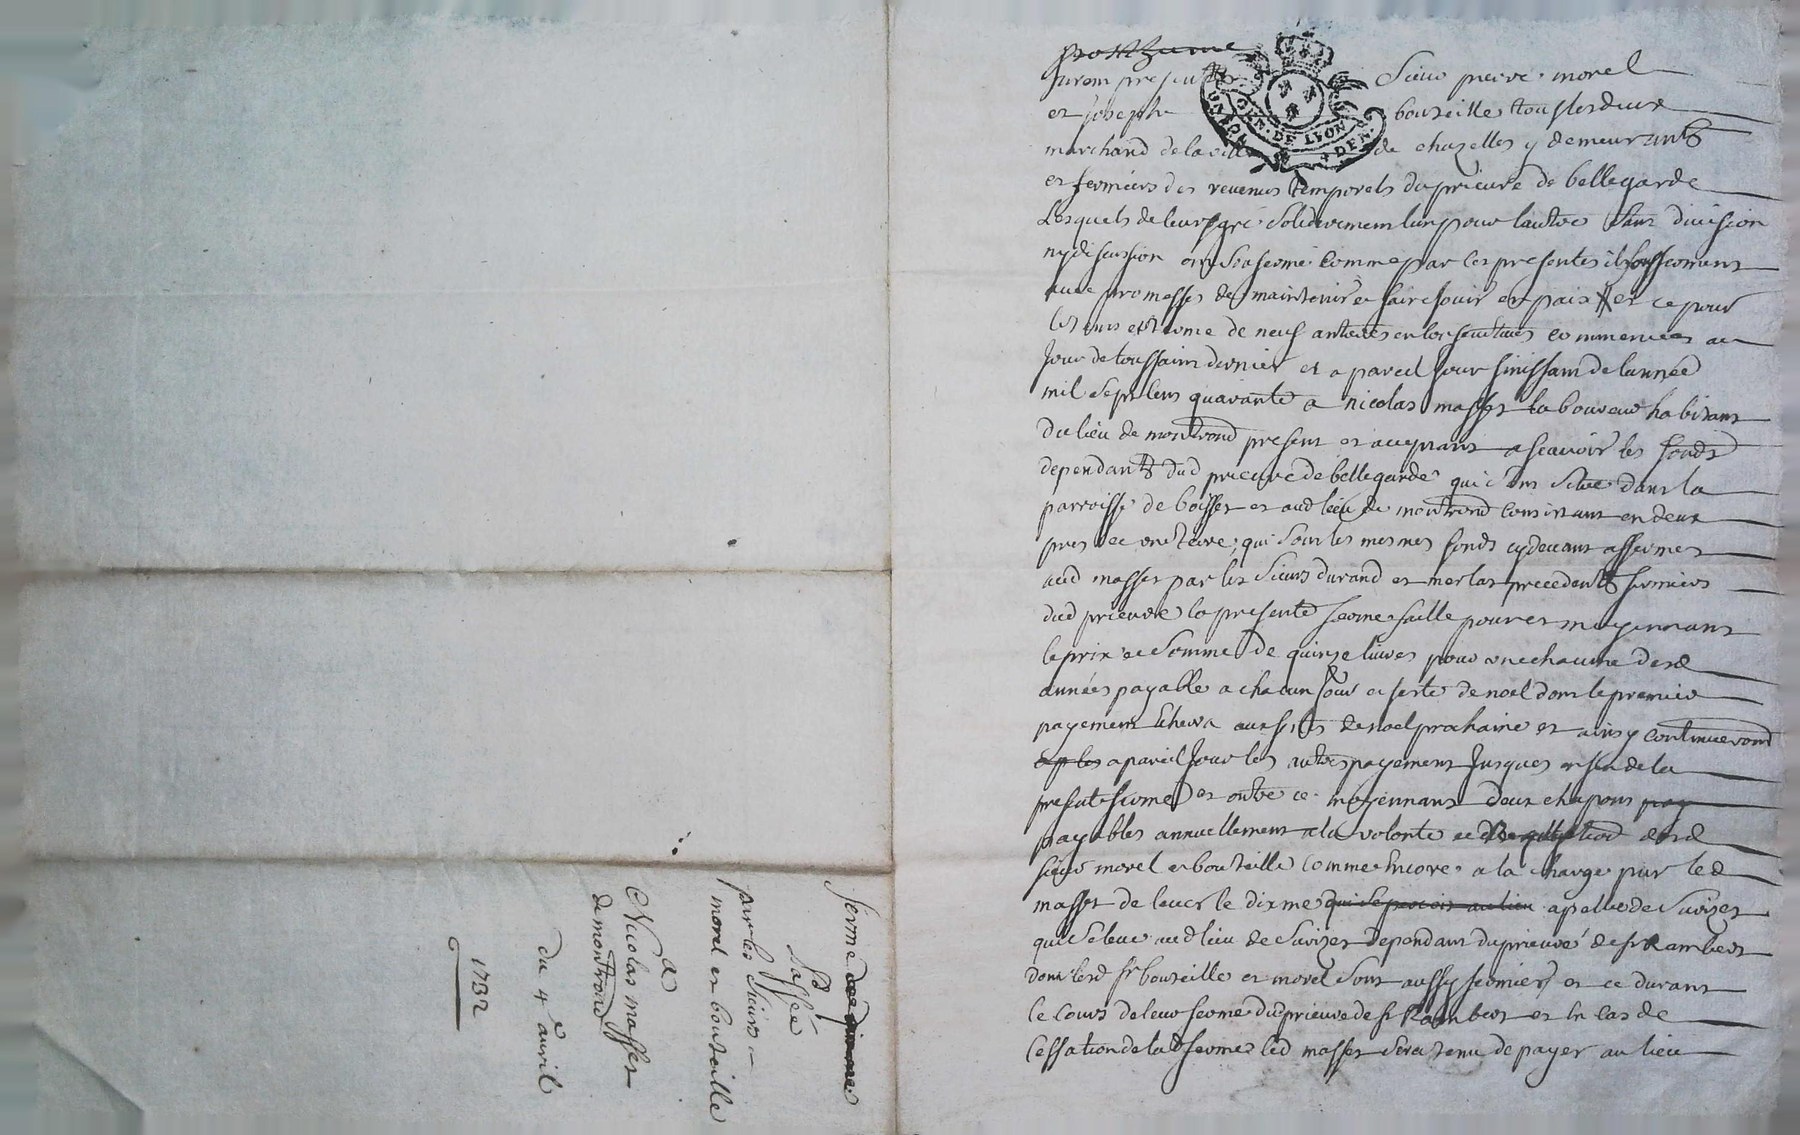 furent presents Sieur pierre morel
et Joseph bouteille tous les deux
marchand de la ville de chazelles y demeurants
et fermiers des revenus temporels du prieuré de bellegarde
Lesquels de leur gré solidairement lun pour lautre sans division
ny discussion ont afermé comme par les presentes ils afferment
avec promesses de maintenir et faire jouir en paix et ce pour
le tems et terme de neuf années commencées au
Jour de toussaint dernier et a pareil Jour finissant de lannée
mil sept cens quarante a nicolas masset laboureur habitant
du lieu de montrond present et acceptant a scavoir les fonds
dependants dud prieuré de bellegarde qui sont situé dans la
parroisse de boisset et aud lieu de montrond consistant en deux
pres et une terre, qui sont les mesmes fonds cydevant affermes
aud masset par les Sieurs durand et merlat precedents fermiers
dud prieuré la presente ferme faitte pour et moyennant
le prix et somme de quinze livres pour une chacune desd
années payable a chacun Jour et feste de noel dont le premier
payement echerra aux festes de noel prochaine et ainsy continueront
a pareil Jour les autres payement Jusques en fin de la
presente ferme et outre ce moyennant deux chapons
payables annuellement a la volonté et Requisition desd
sieurs morel et bouteille comme encore a la charge par led
masset de lever le dixme qui se percoit au lieu apellé de Savizet
qui se leve aud lieu de Savizet dependant du prieuré de st Rambert
dont lesd sr bouteille et morel sont aussy fermiers et ce durant
le cours de leur ferme dud prieuré de st Rambert et en cas de
cessation de lad ferme led masset sera tenu de payer au lieu
ferme
Passée
par les Sieurs
morel et bouteille
a
Nicolas masset
de montrond
du 4e avril
1732
GEN. DE LYON